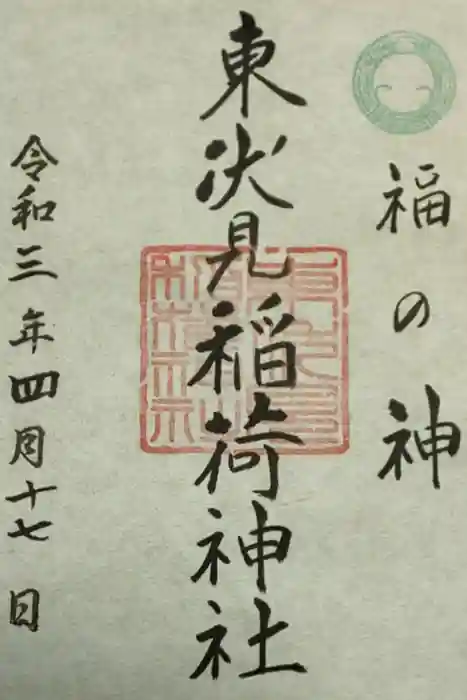 福の神
東伏見稲荷神社
令和三年四月十七日